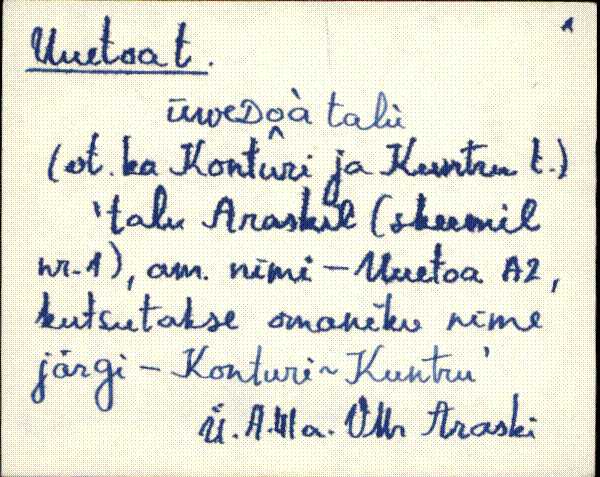 1
Uuetoa t.
ūweDoà talù
(vt. ka Konturi ja Kuntru t.)
'talu Araskil (skeemil
nr. 1), am. nimi – Uuetoa A2,
kutsutakse omaniku nime
järgi – Konturi ~ Kuntru'
Araski